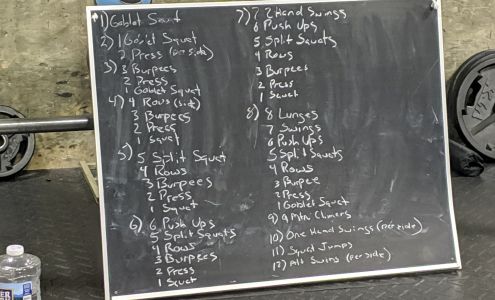 1) Goblet Squat
2) 1 Goblet Squat
2 Press (per side)
3) 3 Burpees
2 Press
1 Goblet Squat
4) 4 Rows (side)
3 Burpees
2 Press
1 Squat
5) 5 Split Squat
4 Rows
3 Burpees
2 Press
1 Squat
6) 6 Push Ups
5 Split Squats
4 Rows
3 Burpees
2 Press
1 Squat
7) 7 2 Hand Swings
6 Push Ups
5 Split Squats
4 Rows
3 Burpees
2 Press
1 Squat
8) 8 Lunges
7 Swings
6 Push Ups
5 Split Squats
4 Rows
3 Burpee
2 Press
1 Goblet Squat
9) 9 Mtn Climers
10) One Hand Swings (per side)
11) Squat Jumps
12) Alt Swing (per side)